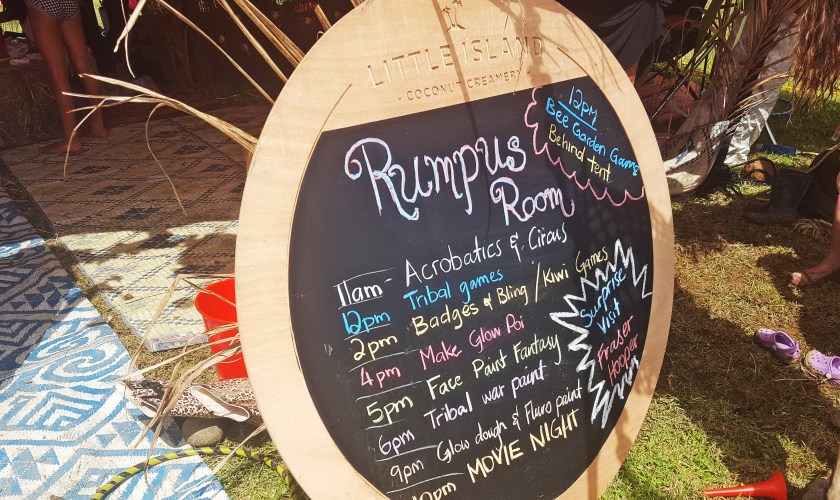 LITTLE ISLAND
- COCONUT CREAMERY -
Rumpus
Room
12pm
Bee Garden Game
Behind tent
11am - Acrobatics & Circus
12pm Tribal games
2pm Badges & Bling / Kiwi Games
4pm Make Glow Poi
5pm Face Paint Fantasy
6pm Tribal war paint
9pm Glow dough & Fluro paint
10pm MOVIE NIGHT
Surprise
Visit
Fraser
Hooper